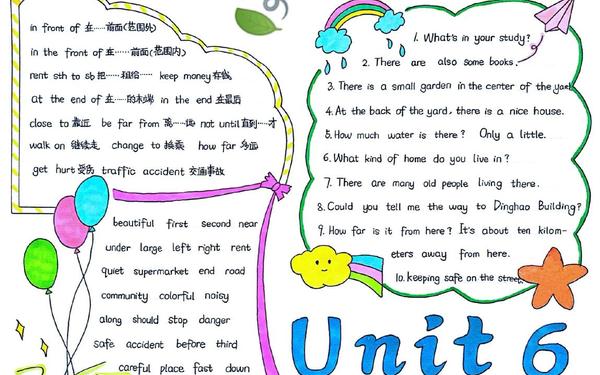 in front of 在……前面(范围外)
in the front of 在……前面(范围内)
rent sth to sb 把……租给…… keep money 存钱
at the end of 在……的末端 in the end 在最后
close to 靠近 be far from 离……远 not until 直到……才
walk on 继续走 change to 换乘 how far 多远
get hurt 受伤 traffic accident 交通事故
beautiful first second near
under large left right rent
quiet supermarket end road
community colorful noisy
along should stop danger
safe accident before third
careful place fast down
1. What's in your study?
2. There are also some books.
3. There is a small garden in the center of the yard
4. At the back of the yard, there is a nice house.
5. How much water is there? Only a little.
6. What kind of home do you live in?
7. There are many old people living there.
8. Could you tell me the way to Dinghao Building?
9. How far is it from here? It's about ten kilom-
eters away from here.
10. keeping safe on the street.
Unit 6